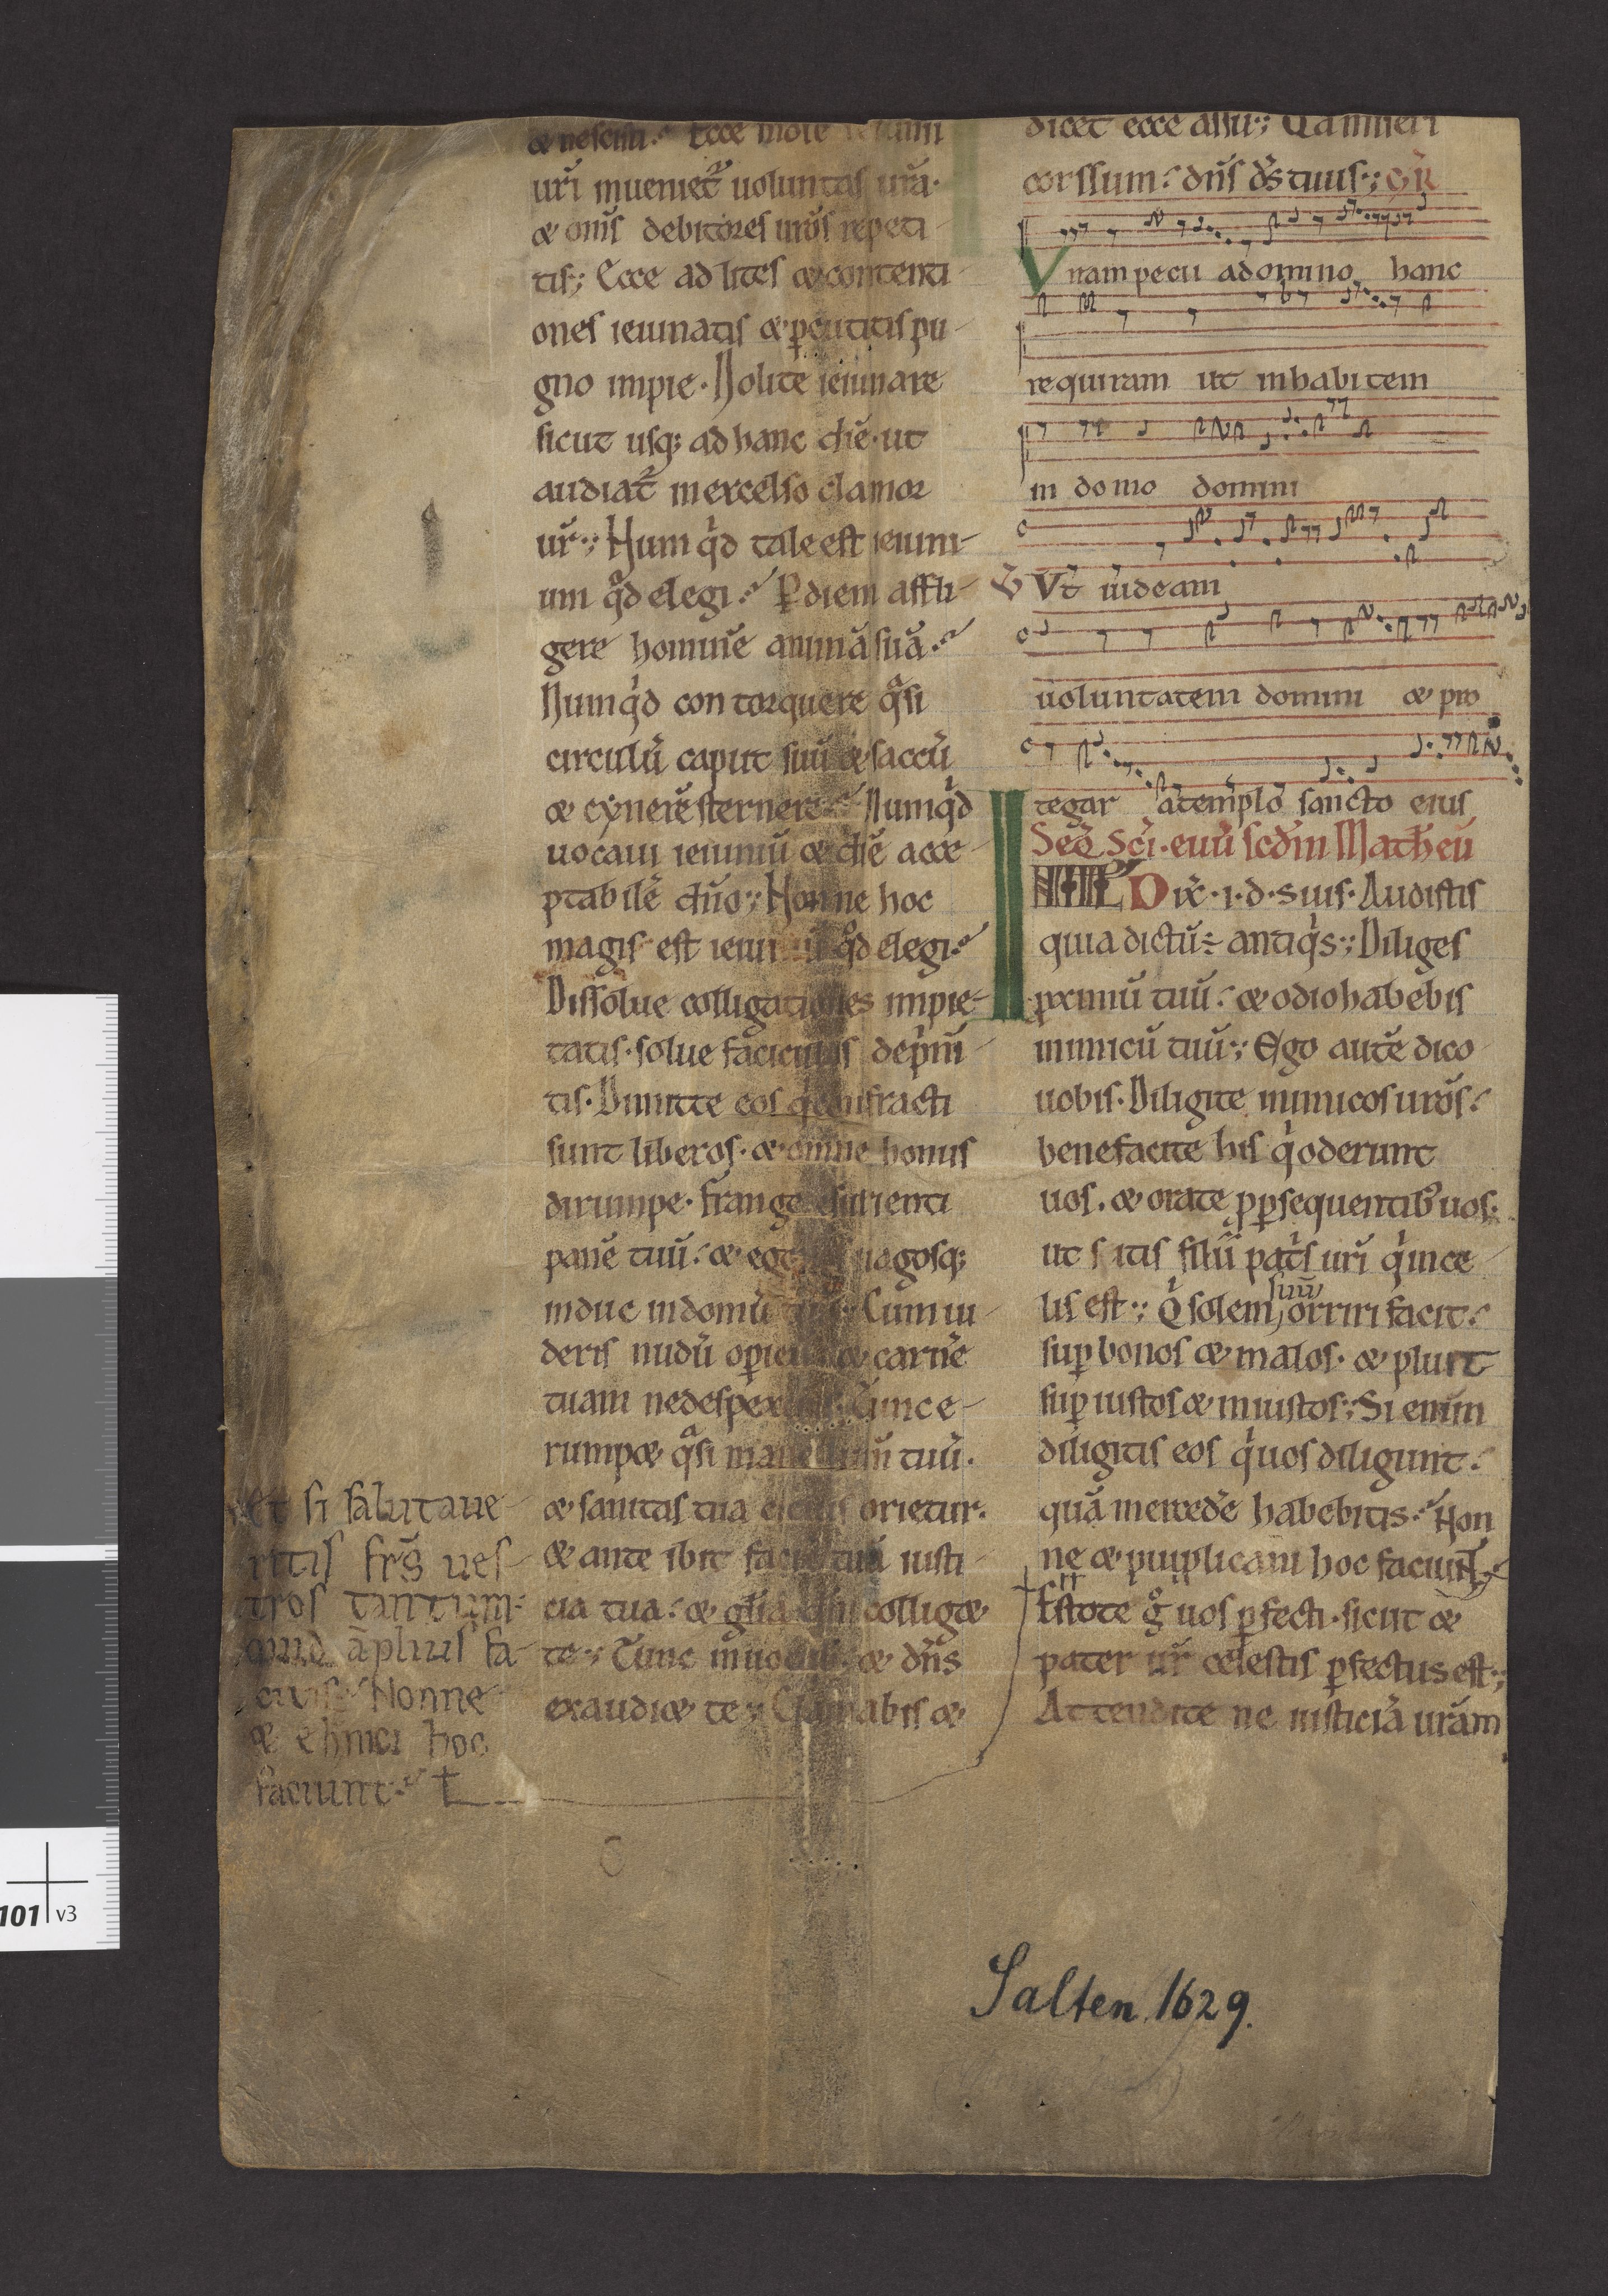 & nescisti. Ecce in die ieiunii
urī inueniet᷑ uoluntas urā.
& oms̄ debitores urōs repeti-
tis; Ecce ad lites & contenti-
ones ieiunatis & ꝑcutitis pu-
gno impie. Nolite ieiunare
sicut usq; ad hanc diē. ut
audiat᷑ in excelso clamor
ur̄; Numqd̍ tale est ieiuni-
um qd̊ elegi. Ꝑ diem affli-
gere hominē animā suā.
Numqd̍ contorquere qͣsi
circulū caput suū & saccū
& cynerē sternere. Numqd̍
uocaui ieiuniū & diē acce-
ptabilē dño; Nonne hoc
magis est ieiuniū qd̊ elegi.
Dissolue colligationes impie-
tatis. solue fasciculos dep̍m̄-
tis. Dimitte eos q̍ confracti
sunt liberos. & omne honus
dirumpe. Frange esurienti
panē tuū. & egenos uagosq;
induc in domū tuā; Cum ui-
deris nudū oꝑi eum & carnē
tuam ne despexeris. Tunc e-
rump& qͣsi mane lumū tuū.
& sanitas tua citius orietur.
& ante ibit faciē tuā iusti-
cia tua. & glīa dñi collig&
te; Tunc inuocabis & dñs
exaudi& te; Clamabis &
Et si salutaue-
ritis frs̄ ues-
tros tantum.
quid āplius fa-
citis. Nonne
& ethnici hoc
faciunt.
dicet ecce assum; Quia miseri-
corssum. dñs d̄s tuus; GR̄
Vnam pecii a domino hanc
requiram ut inhabitem
in domo domini
V̄ Vt uideam
uoluntatem domini & pro
tegar a templo sancto eius
Seq̄ Sc̄i. euū scd̄m Matheū
IN ILL Dix̄. i. d. suis. Audistis
quia dictū ÷ antiq̍s; Diliges
ꝓximū tuū. & odio habebis
inimicū tuū; Ego autē dico
uobis. Diligite inimicos urōs.
benefacite his q̍ oderunt
uos. & orate ꝓ ꝑsequentib; uos.
ut sitis filii pat̍s urī q̍ in ce-
lis est; Q̍ solem suū orriri facit.
suꝑ bonos & malos. & pluit
suꝑ iustos & iniustos; Si enim
diligitis eos q̍ uos diligunt.
quā mercedē habebitis. Non-
ne & puplicani hoc faciunt.
Estote g̊ uos ꝑfecti. sicut &
pater ur̄ celestis ꝑfectus est;
Attendite ne iusticiā urām
Salten. 1629.
101 v3